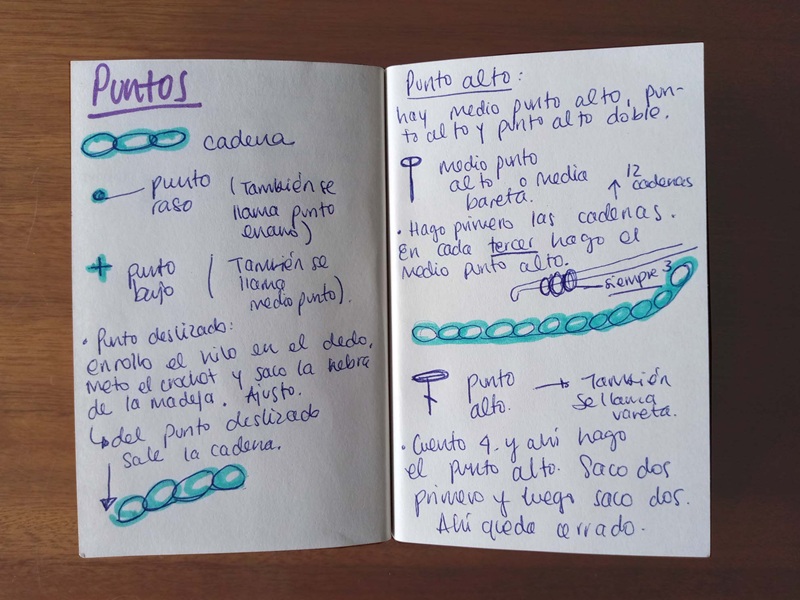 Puntos
cadena
punto
raso
(También se
llama punto
enano)
punto
bajo
(También se
llama
medio punto).
• Punto deslizado:
enrollo el hilo en el dedo,
meto el crochot y saco la hebra
de la madeja. Ajusto.
↳ del punto deslizado
sale la cadena.
Punto alto:
hay medio punto alto, pun-
to alto y punto alto doble.
medio punto
alto o media
bareta.
↑ 12
cadenas
• Hago primero las cadenas.
En cada tercer hago el
medio punto alto.
siempre 3
punto
alto.
→ También
se llama
vareta.
• Cuento 4. y ahí hago
el punto alto. Saco dos
primero y luego saco dos.
Ahí queda cerrado.